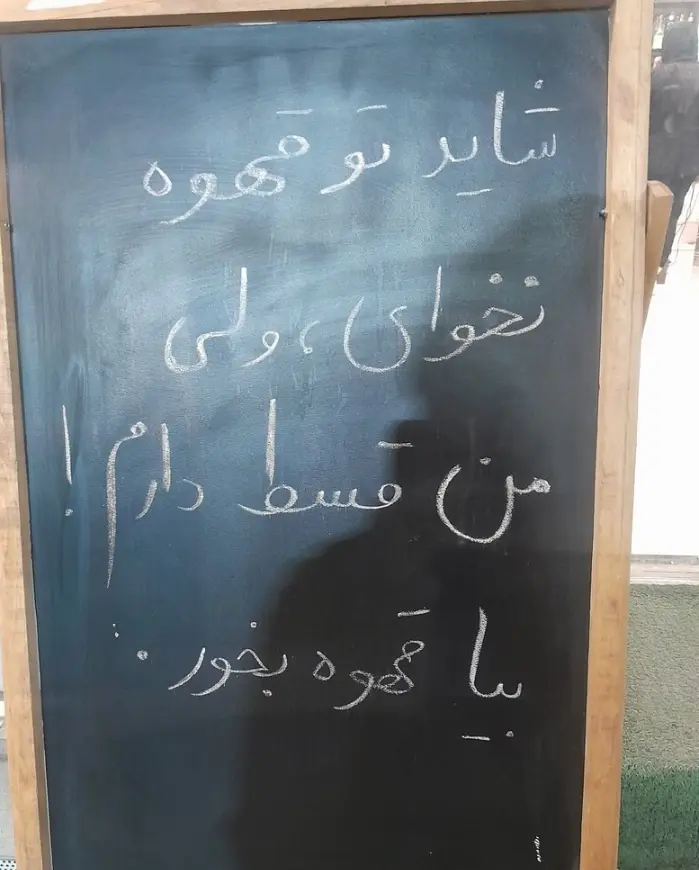 شاید تو قهوه
نخوای، ولی
من قسط دارم!
بیا قهوه بخور.